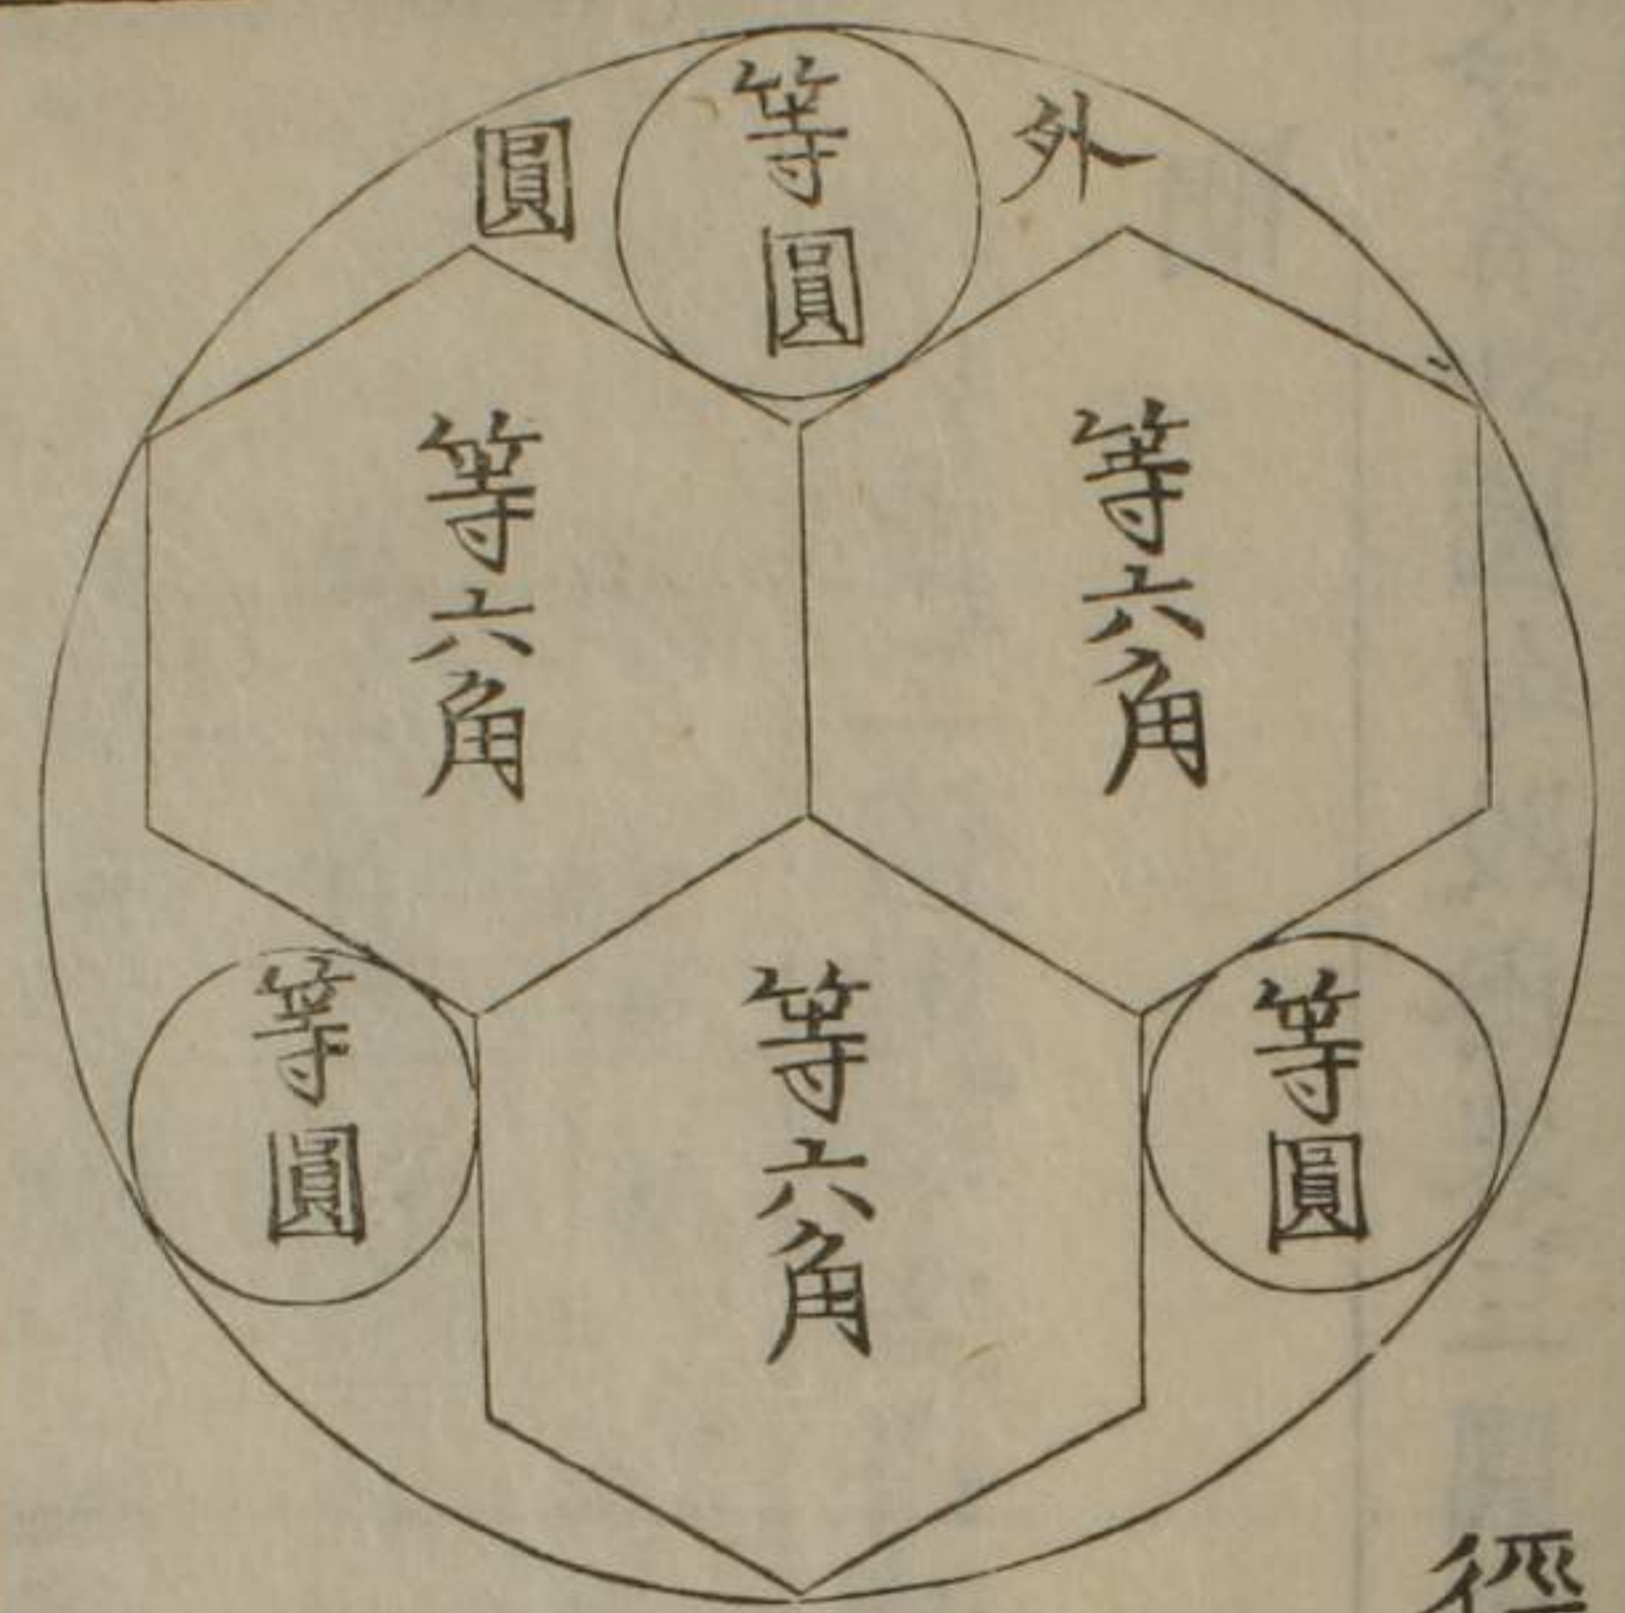 外圓
等圓
等六角
等六角
等圓
等六角
等圓
徑